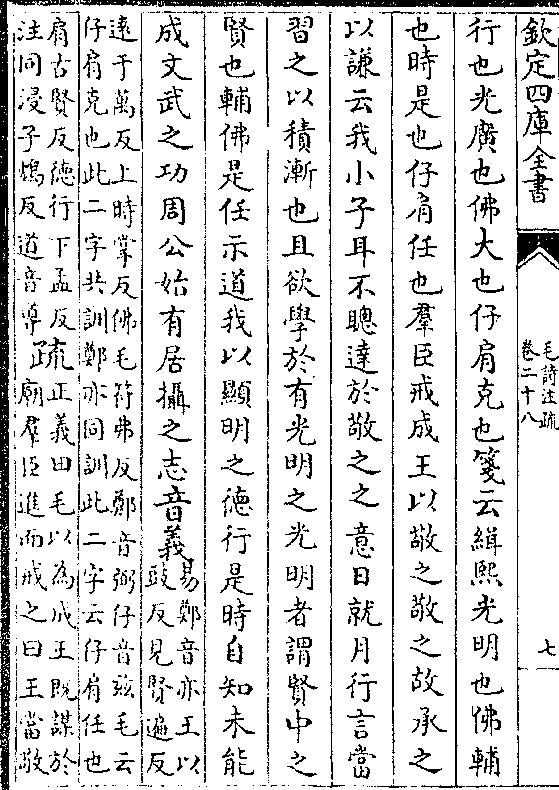 欽定四庫全書
毛詩注疏
卷二十八
七
行也光廣也佛大也仔肩克也箋云緝熙光明也佛輔
也時是也仔肩任也羣臣戒成王以敬之敬之故承之
以謙云我小子耳不聰達於敬之之意日就月行言當
習之以積漸也且欲學於有光明之光明者謂賢中之
賢也輔佛是任示道我以顯明之德行是時自知未能
成文武之功周公始有居攝之志音義易鄭音亦王以
豉反見賢遍反
遠于萬反上時掌反佛毛符弗反鄭音弼仔音玆毛云
仔肩克也此二字共訓鄭亦同訓此二字云仔肩任也
肩古賢反德行下孟反
注同浸子鴆反道音導疏正義曰毛以為成王既謀於
廟羣臣進而戒之曰王當敬